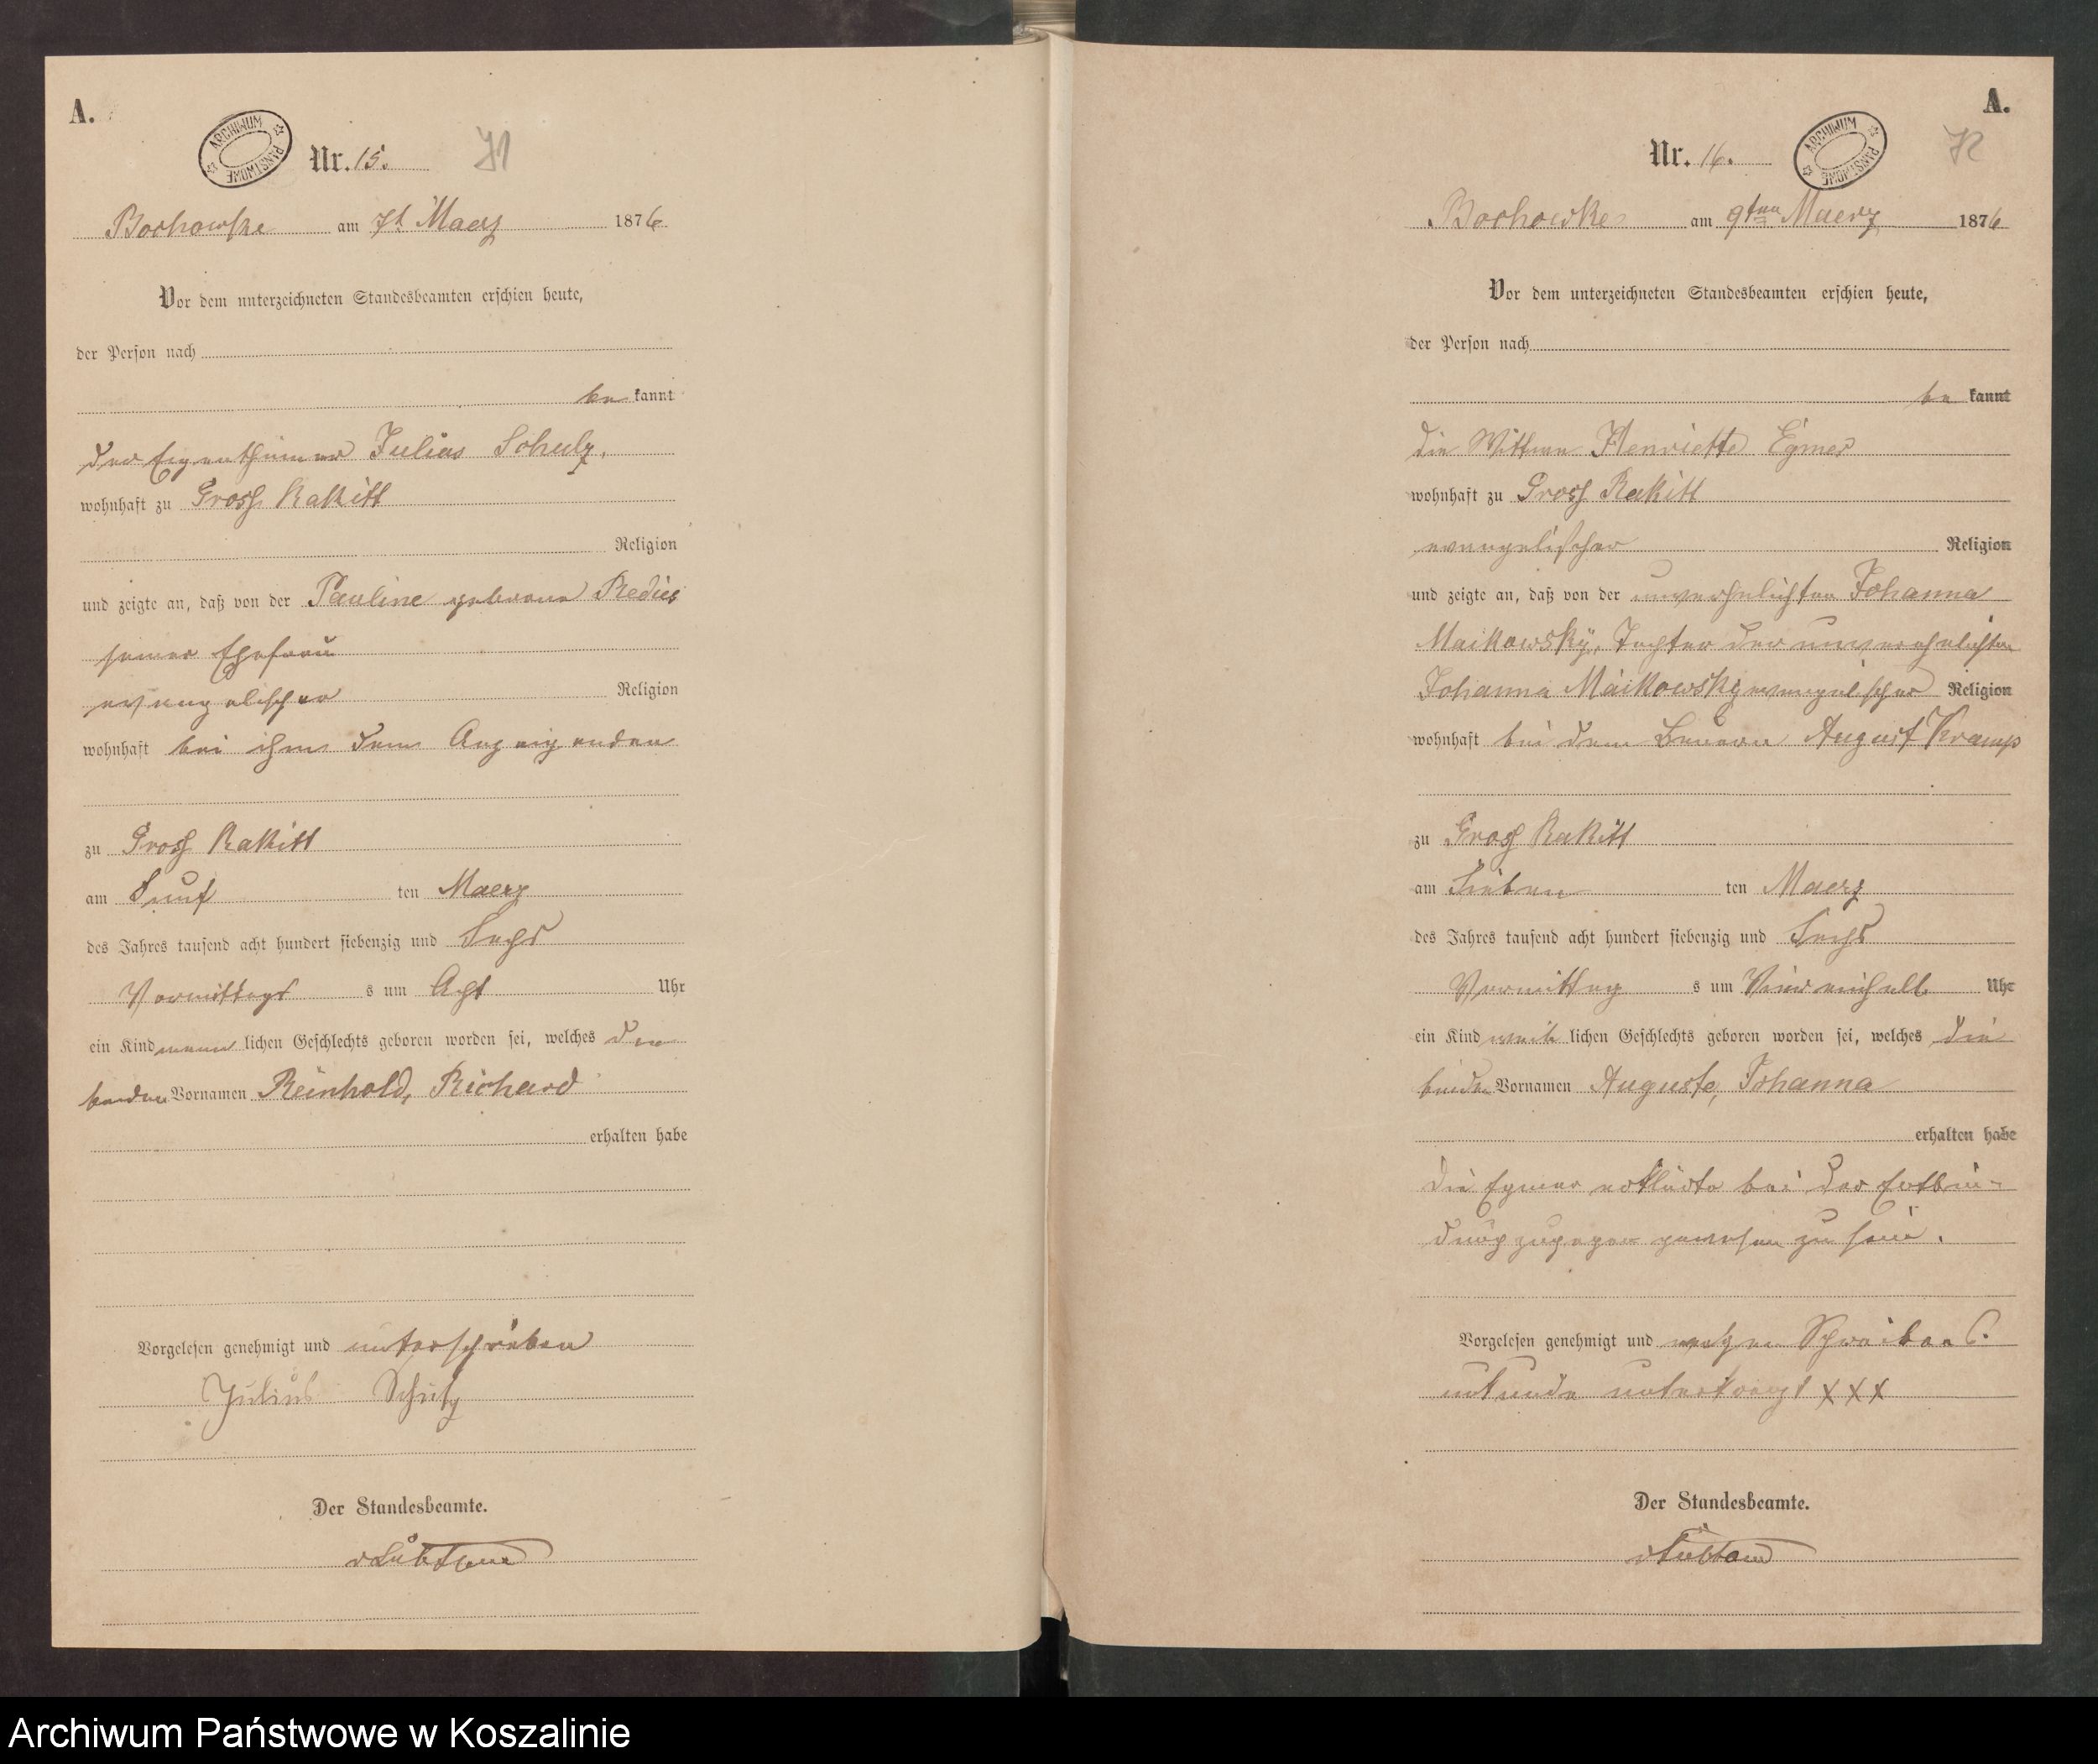 A.
ARCHIWUM PAŃSTWOWE
Nr. 15.
71
Borkowske am 7t Maerz 1876
Vor dem unterzeichneten Standesbeamten erschien heute,
der Person nach
be kannt
der Eigenthümer Julius Schulz,
wohnhaft zu Gross Rakitt
Religion
und zeigte an, daß von der Pauline geborene
seiner Ehefrau
evangelischer Religion
wohnhaft bei ihm dem Anzeigenden
zu Gross Rakitt
am Fünf ten Maerz
des Jahres tausend acht hundert siebenzig und Sechs
Vormittags s um Acht Uhr
ein Kind maenn lichen Geschlechts geboren worden sei, welches den
beiden Vornamen Reinhold, Richard
erhalten habe
Vorgelesen genehmigt und unterschrieben
Julius Schulz
Der Standesbeamte.
A.
Nr. 16.
ARCHIWUM PAŃSTWOWE
72
Borkowske am 9ten Maerz 1876
Vor dem unterzeichneten Standesbeamten erschien heute,
der Person nach
be kannt
die Wittwe Henriette Egmer
wohnhaft zu Gross Rakitt
evangelischer Religion
und zeigte an, daß von der unverehelichten Johanna
Maikowsky, Tochter der unverehelichten
Johanna Maikowsky evangelischer Religion
wohnhaft bei dem Bauern August Kramp
zu Gross Rakitt
am Sieben ten Maerz
des Jahres tausend acht hundert siebenzig und Sechs
Vormittag s um Vier einhalb Uhr
ein Kind weib lichen Geschlechts geboren worden sei, welches die
beiden Vornamen Auguste, Johanna
erhalten habe
die Egmer erklärte bei der Entbin-
dung zugegen gewesen zu sein.
Vorgelesen genehmigt und wegen Schreibens
unkunde unterkreuzt XXX
Der Standesbeamte.
Archiwum Państwowe w Koszalinie